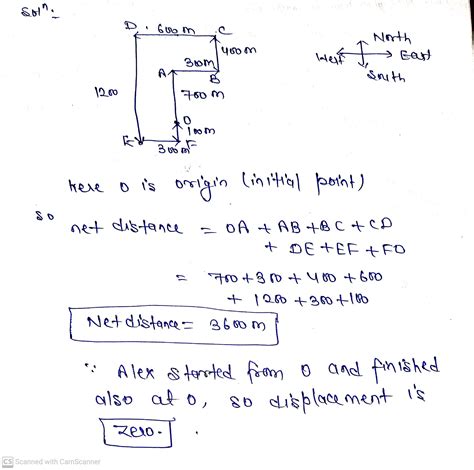 Solⁿ:-
D . 600 m C
400 m
North
West East
South
300m
A B
1200
700 m
O
100m
E F
300 m
here O is origin (initial point)
so
net distance = OA + AB + BC + CD
+ DE + EF + FO
= 700 + 300 + 400 + 600
+ 1200 + 300 + 100
Net distance = 3600 m
∵ Alex started from O and finished
also at O, so displacement is
zero. .
CS Scanned with CamScanner